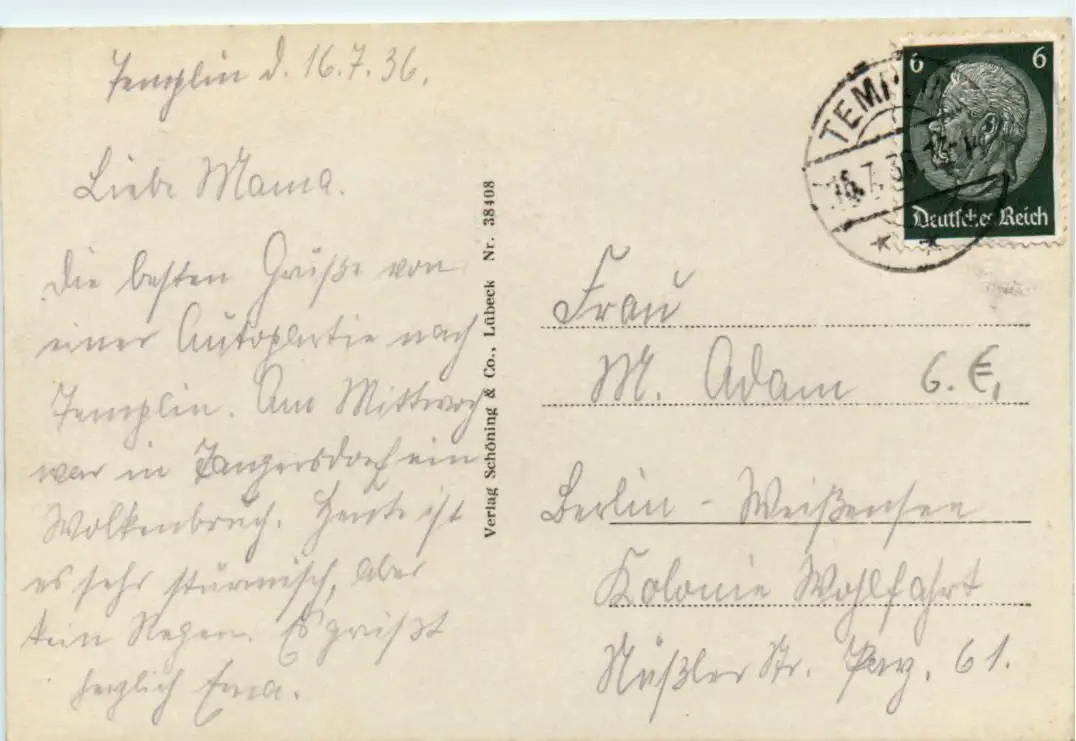 Templin d. 16.7.36.
Liebe Mama.
Die besten Grüße von
einer Autopartie nach
Templin. Am Mittwoch
war in Tangersdorf ein
Wolkenbruch. Heute ist
es sehr stürmisch, aber
kein Regen. Es grüßt
herzlich Erna.
Verlag Schöning & Co., Lübeck Nr. 38408
TEMPLIN
16.7.36
6 6
Deutsches Reich
Frau
M. Adam 6.€,
Berlin - Weißensee
Kolonie Wohlfahrt
Nüßler Str. Parz. 61.